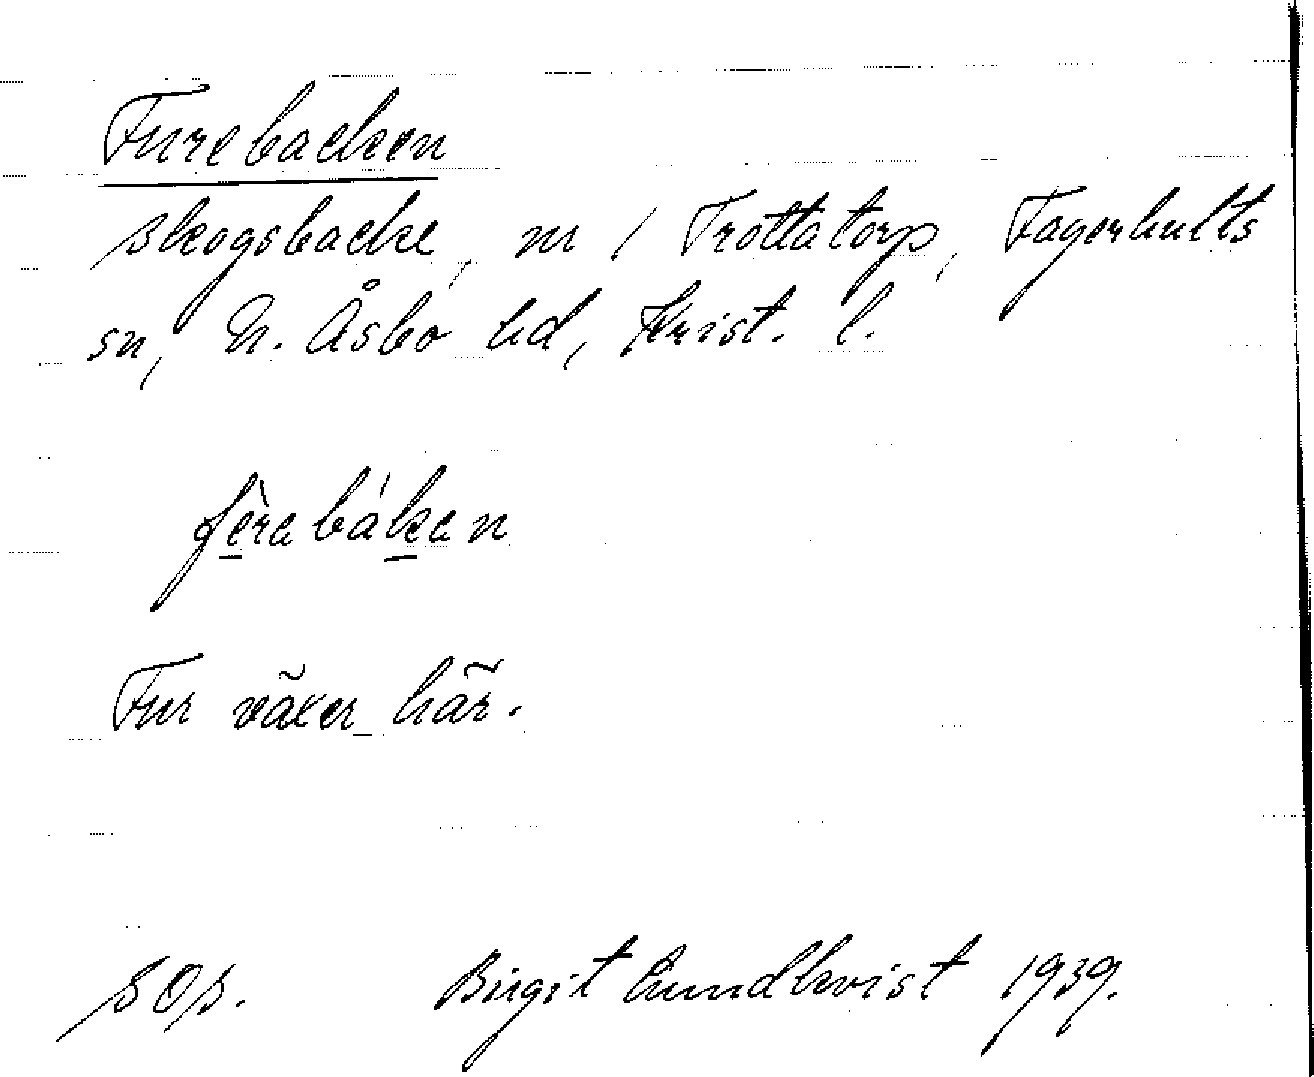 Furebacken
skogsbacke, nr 1 Trottatorp, Fagerhults
sn, N. Åsbo hd, Krist. l.
fèrabákan
Fur växer här.
SOs. Birgit Lundkvist 1939.